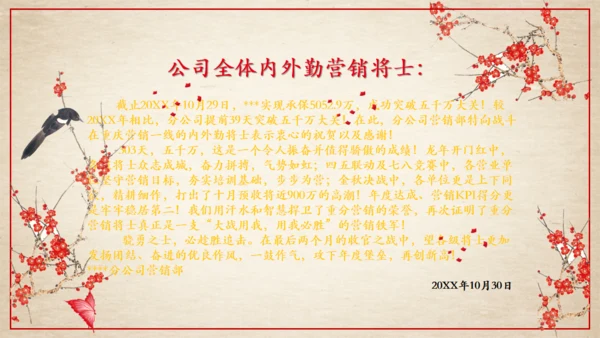 公司全体内外勤营销将士：
截止20XX年10月29日，***实现承保5052.9万，成功突破五千万大关！较
20XX年相比，分公司提前39天突破五千万大关！在此，分公司营销部转向战斗
在重庆营销一线的内外勤将士表示衷心的祝贺以及感谢！
303天，五千万，这是一个令人振奋并值得骄傲的成绩！龙年开门红中，
将士众志成城，奋力拼搏，气势如虹；四五联动及七八竞赛中，各营业学
坚守营销目标，夯实培训基础，步步为营；金秋决战中，各单位更是上下同
精耕细作，打出了十月预收将近900万的高潮！年度达成、营销KPI得分更
是牢牢稳居第二！我们用汗水和智慧捍卫了重分营销的荣誉，再次证明了重分
营销将士真正是一支“大战用我，用我必胜”的营销铁军！
骁勇之士，必趁胜追击。在最后两个月的收官之战中，望各级将士更加
发扬团结、奋进的优良作风，一鼓作气，攻下年度堡垒，再创新高！
****分公司营销部
20XX年10月30日